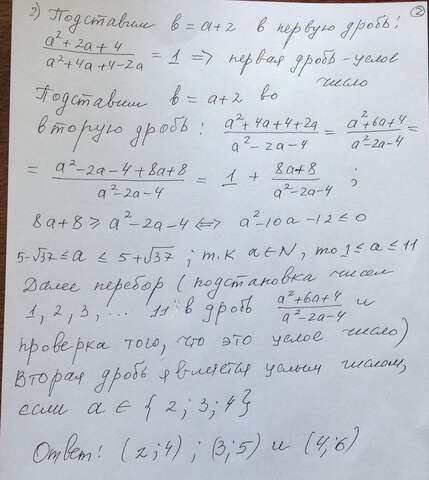 ②
2) Подставим b = a+2 в первую дробь:
(a²+2a+4)/(a²+4a+4-2a) = 1 => первая дробь - целое
число
Подставим b = a+2 во
вторую дробь: (a²+4a+4+2a)/(a²-2a-4) = (a²+6a+4)/(a²-2a-4) =
= (a²-2a-4+8a+8)/(a²-2a-4) = 1 + (8a+8)/(a²-2a-4) ;
8a+8 ≥ a²-2a-4 <=> a²-10a-12 ≤ 0
5-√37 ≤ a ≤ 5+√37 ; т.к a∈N, то 1 ≤ a ≤ 11
Далее перебор (подстановка чисел
1, 2, 3, ... 11 в дробь (a²+6a+4)/(a²-2a-4) и
проверка того, что это целое число)
Вторая дробь является целым числом,
если a ∈ {2; 3; 4}
Ответ: (2;4) ; (3;5) и (4;6)